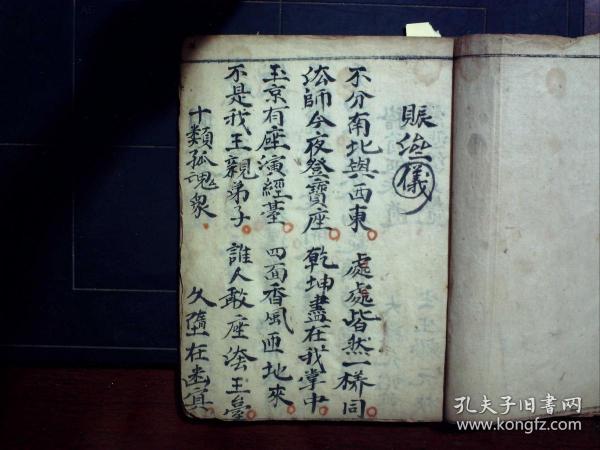 賑濟儀
不分南北與西東 處處皆然一樣同
法師今夜登寶座 乾坤盡在我掌中
玉京有座演經臺 四面香風匝地來
不是我王親弟子 誰人敢座法王臺
十類孤魂眾 久墮在幽冥
孔夫子旧书网
www.kongfz.com